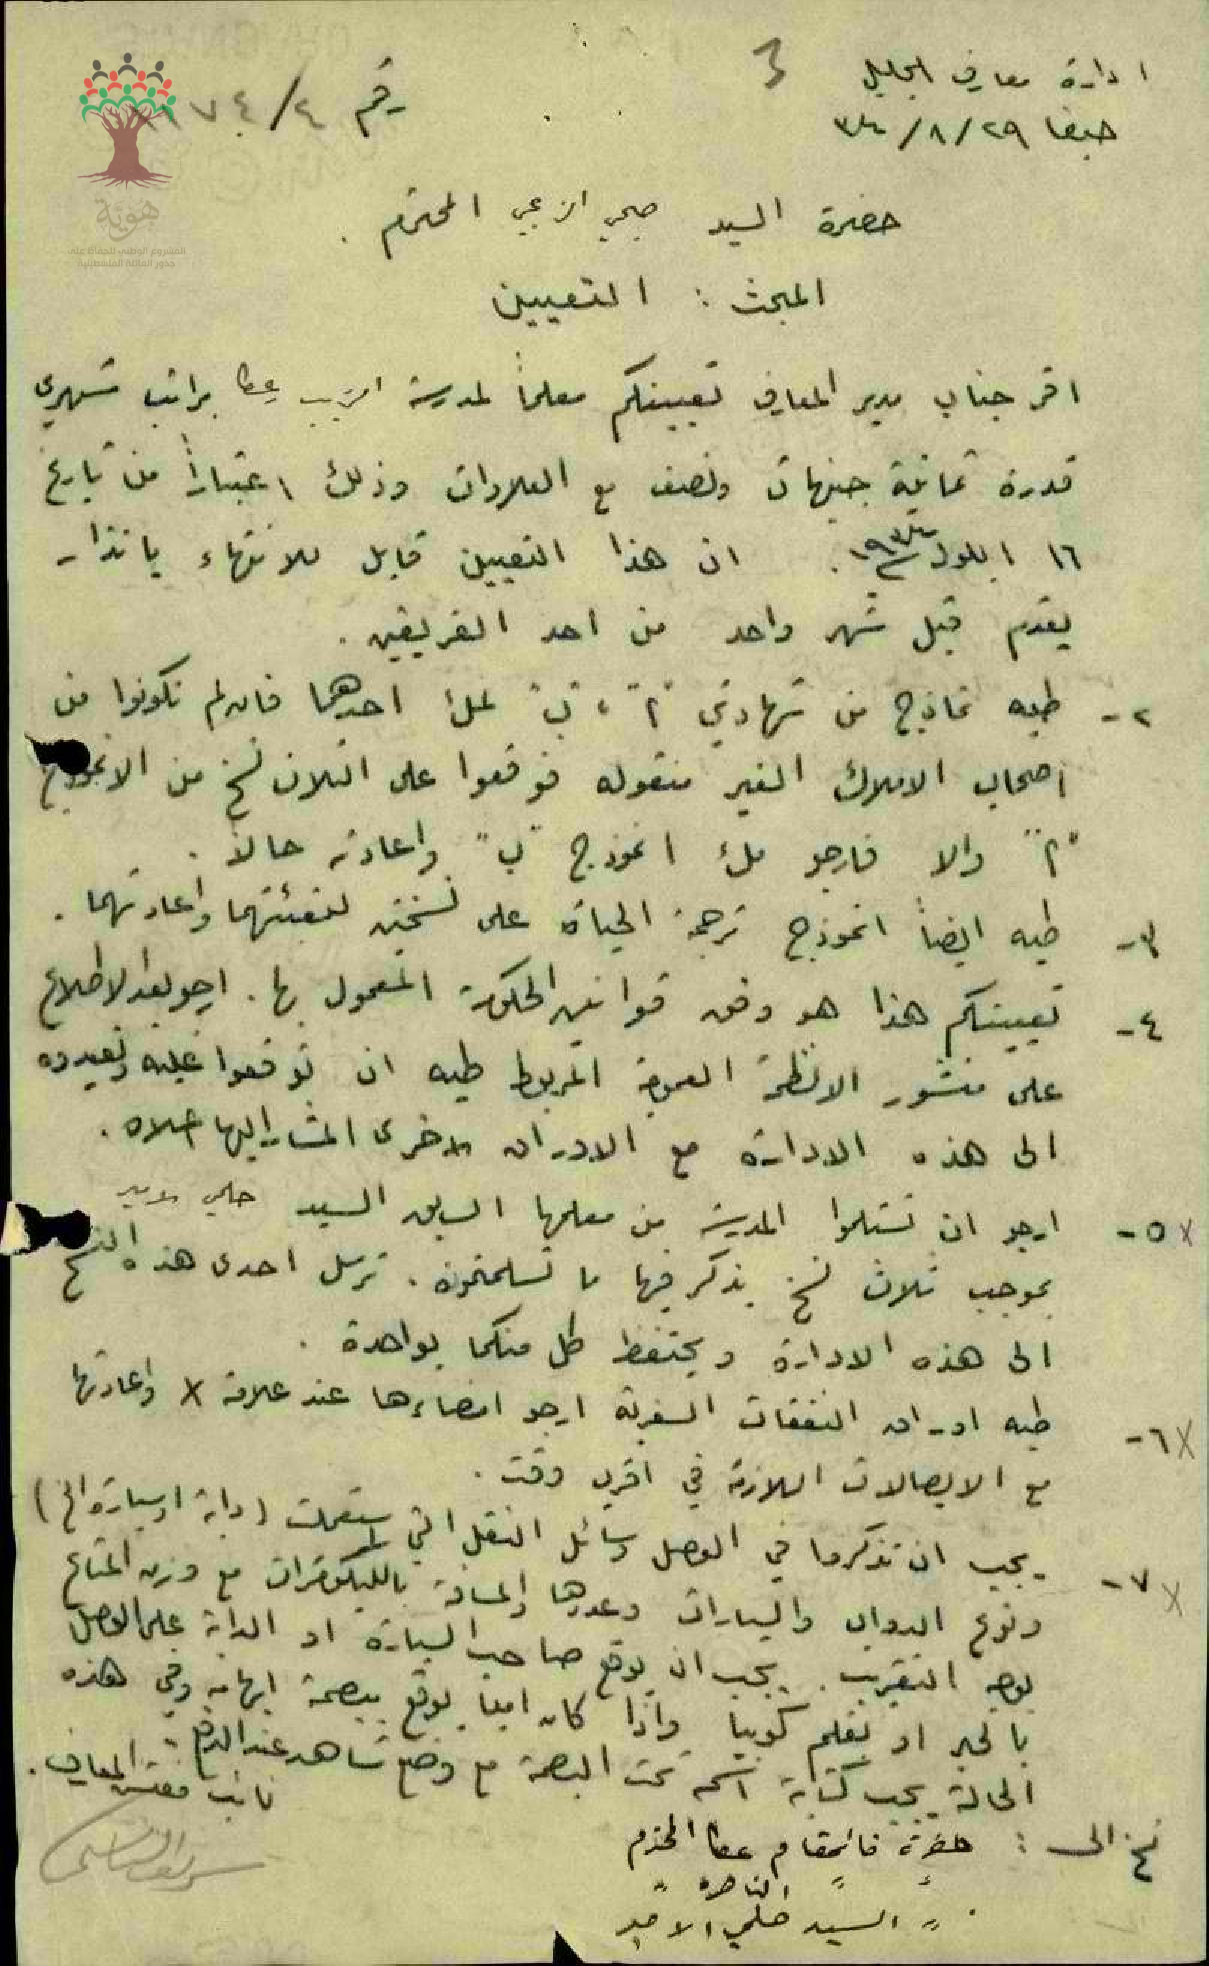 ادارة معارف الجليل
حيفا ٢٩/٨/٣٤
رقم ٧٤/٤
3
هوية
المشروع الوطني للحفاظ على
جذور العائلة الفلسطينية
حضرة السيد صبحي الزعبي المحترم .
المبحث : التعيين
اقر جناب مدير المعارف تعيينكم معلماً لمدرسة عكا براتب شهري
قدره ثمانية جنيهات ونصف مع العلاوات وذلك اعتباراً من تاريخ
١٦ ايلول سنة ١٩٣٤ . ان هذا التعيين قابل للانتهاء بانذار
يقدم قبل شهر واحد من احد الفريقين .
٢- طيه نماذج من شهادتي "أ" ، "ب" لملأ احدهما فان لم تكونوا من
اصحاب الاملاك الغير منقوله فوقعوا على الثلاث نسخ من الانموذج
"أ" والا فارجو ملء انموذج "ب" واعادته حالاً .
٣- طيه ايضاً انموذج ترجمة الحياة على نسختين لتعبئتهما واعادتهما .
٤- تعيينكم هذا هو وفق قوانين الحكومة المعمول بها . ارجو بعد الاطلاع
على منشور الانظمة العمومية المربوط طيه ان توقعوا عليه وتعيدوه
الى هذه الادارة مع الاوراق الاخرى المشار اليها اعلاه .
x ٥- ارجو ان تستلموا المدرسة من معلمها السابق السيد حلمي الامير
بموجب ثلاث نسخ يذكر فيها ما تسلمتموه . ترسل احدى هذه النسخ
الى هذه الادارة ويحتفظ كل منكما بواحدة .
x ٦- طيه اوراق النفقات السفرية ارجو امضاءها عند علامة x واعادتها
مع الايصالات اللازمة في اقرب وقت .
x ٧- يجب ان تذكروا في الوصل وسائل النقل التي استعملت (دابة او سيارة الخ)
ونوع الدواب والسيارات وعددها والمسافة بالكيلومترات مع وزن المتاع
بوجه التقريب . يجب ان يوقع صاحب السيارة او الدابة على الوصل
بالحبر او بقلم كوبيا واذا كان اميا يوقع ببصمة ابهامه وفي هذه
الحالة يجب كتابة اسمه تحت البصمة مع وضع شاهد عند الدفع .
نائب مفتش المعارف .
نسخ الى : حضرة قائمقام عكا المحترم
" " الناصرة "
" السيد حلمي الامير